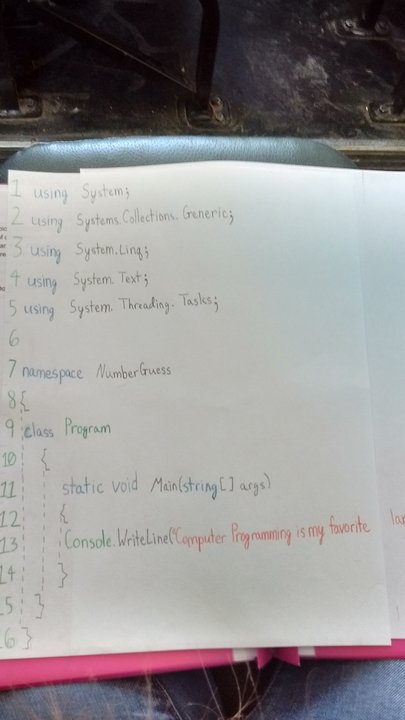 1 using System;
2 using Systems.Collections.Generic;
3 using System.Linq;
4 using System.Text;
5 using System.Threading.Tasks;
6
7 namespace NumberGuess
8 {
9 class Program
10 {
11 static void Main(string[] args)
12 {
13 Console.WriteLine("Computer Programming is my favorite
14 }
15 }
16 }